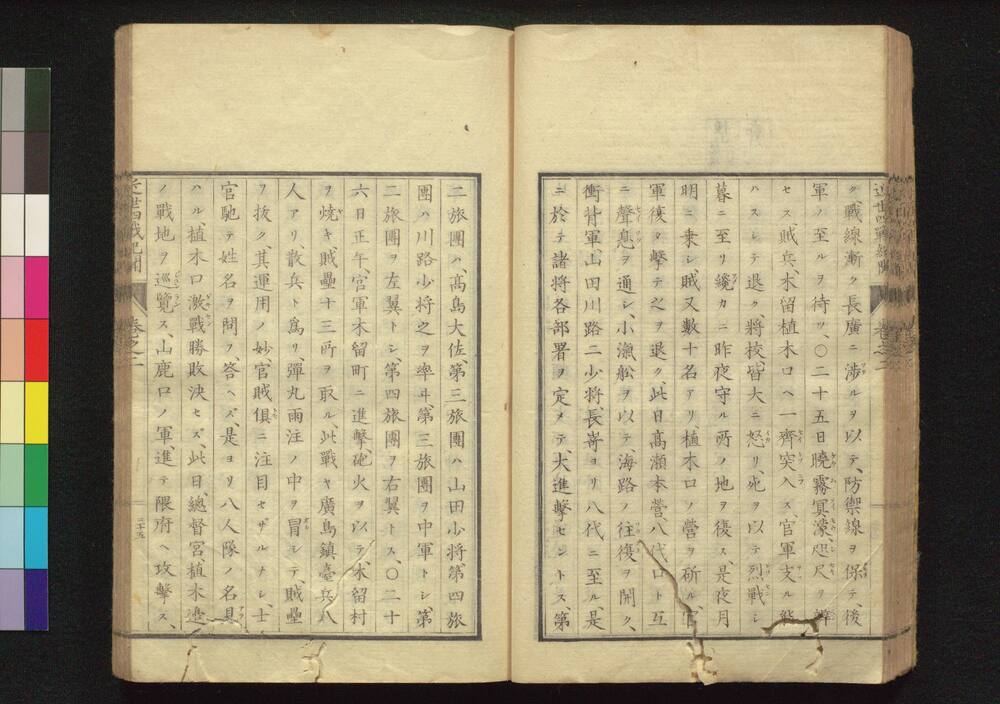 近世四戰紀聞
卷之二
ク戰線漸ク長廣ニ渉ルヲ以テ、防禦線ヲ保テ、後
軍ノ至ルヲ待ツ、〇二十五日曉霧冥濛、咫尺ヲ辨
セス賊兵、木留植木口ヘ一齊突入ス、官軍支ル能
ハスシテ退ク、將校皆大ニ怒リ、死ヲ以テ烈戰シ
暮ニ至リ纔カニ昨夜守ル所ノ地ヲ復ス、是夜月
明ニ乗シ、賊又數十名アリ、植木口ノ營ヲ斫ル、官
軍復タ擊テ之ヲ退ク、此日髙瀬本營、八代口ト互
ニ聲息ヲ通シ、小漁舩ヲ以テ、海路ノ往復ヲ開ク、
衝背軍、山田川路二少将、長嵜ヨリ八代ニ至ル、是
ニ於テ諸将各部署ヲ定メテ、大進擊セントス、第
二旅團ハ、髙島大佐、第三旅團ハ山田少将、第四旅
團ハ川路少将之ヲ率ヰ第三旅團ヲ中軍トシ第
二旅團ヲ左翼トシ、第四旅團ヲ右翼トス、〇二十
六日正午、官軍木留町ニ進擊、砲火ヲ以テ、木留村
ヲ燒キ、賊壘十三所ヲ取ル、此戰ヤ廣島鎮臺兵八
人アリ、散兵ト爲リ、彈丸雨注ノ中ヲ冒シテ、賊壘
ヲ抜ク、其運用ノ妙、官賊俱ニ注目セザルナシ、士
官馳テ姓名ヲ問フ、答ヘズ、是ヨリ八人隊ノ名

ハル植木口激戰勝敗決セズ、此日、總督宮、植木邊
ノ戰地ヲ巡覽ス、山鹿口ノ軍、進テ隈府ヘ攻擊ス、
近世四戰紀聞
卷之二
二十五